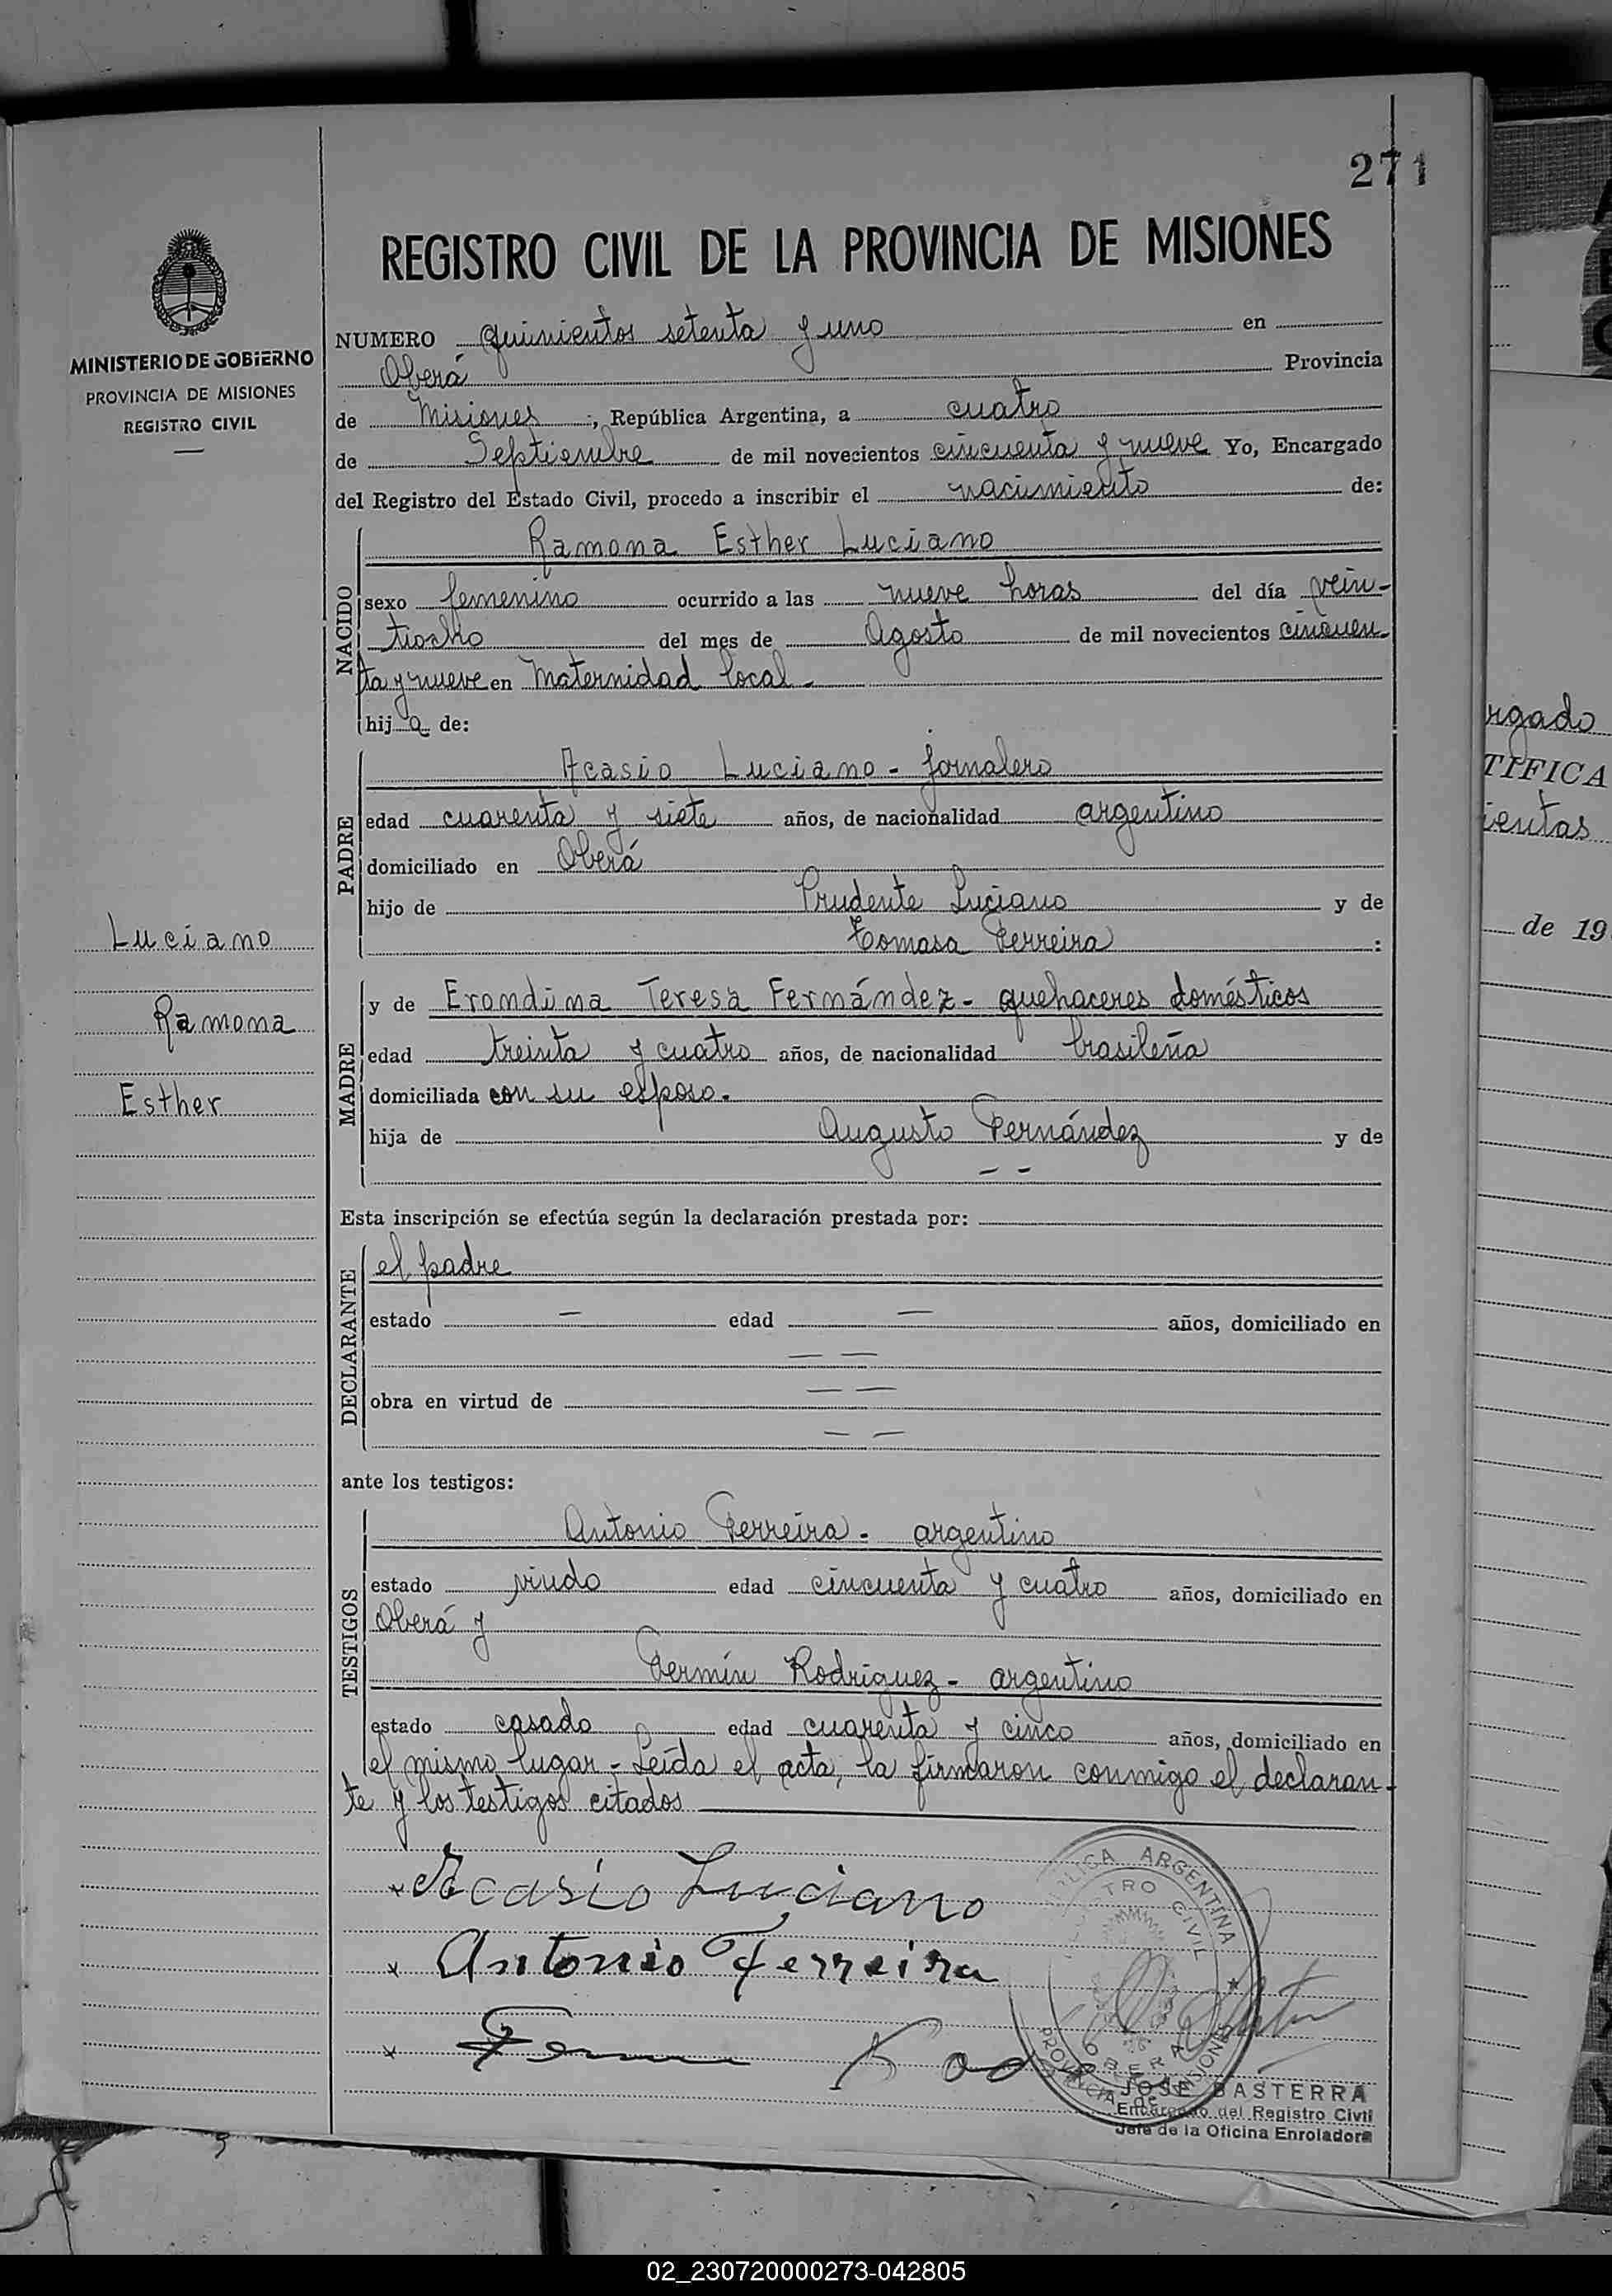 271
REGISTRO CIVIL DE LA PROVINCIA DE MISIONES
MINISTERIO DE GOBIERNO
PROVINCIA DE MISIONES
REGISTRO CIVIL
NUMERO quinientos setenta y uno en
Oberá Provincia
de Misiones, República Argentina, a cuatro
de Septiembre de mil novecientos cincuenta y nueve Yo, Encargado
del Registro del Estado Civil, procedo a inscribir el nacimiento de:
NACIDO
Ramona Esther Luciano
sexo femenino ocurrido a las nueve horas del día vein-
tiocho del mes de Agosto de mil novecientos cincuen-
ta y nueve en Maternidad local.
hija de:
PADRE
Acasio Luciano - jornalero
edad cuarenta y siete años, de nacionalidad argentino
domiciliado en Oberá
hijo de Prudente Luciano y de
Tomasa Ferreira :
Luciano
Ramona
Esther
MADRE
y de Erondina Teresa Fernández - quehaceres domésticos
edad treinta y cuatro años, de nacionalidad brasileña
domiciliada con su esposo.
hija de Augusto Fernández y de
- -
Esta inscripción se efectúa según la declaración prestada por:
DECLARANTE
el padre
estado — edad — años, domiciliado en
— —
obra en virtud de — —
— —
ante los testigos:
TESTIGOS
Antonio Ferreira - argentino
estado viudo edad cincuenta y cuatro años, domiciliado en
Oberá y
Fermín Rodriguez - argentino
estado casado edad cuarenta y cinco años, domiciliado en
el mismo lugar - Leída el acta, la firmaron conmigo el declaran-
te y los testigos citados
Acasio Luciano
Antonio Ferreira
REPUBLICA ARGENTINA
REGISTRO CIVIL
OBERA
PROVINCIA DE MISIONES
JOSE BASTERRA
Encargado del Registro Civil
Jefe de la Oficina Enroladora
rgado
TIFICA
ientas
de 19
02_230720000273-042805